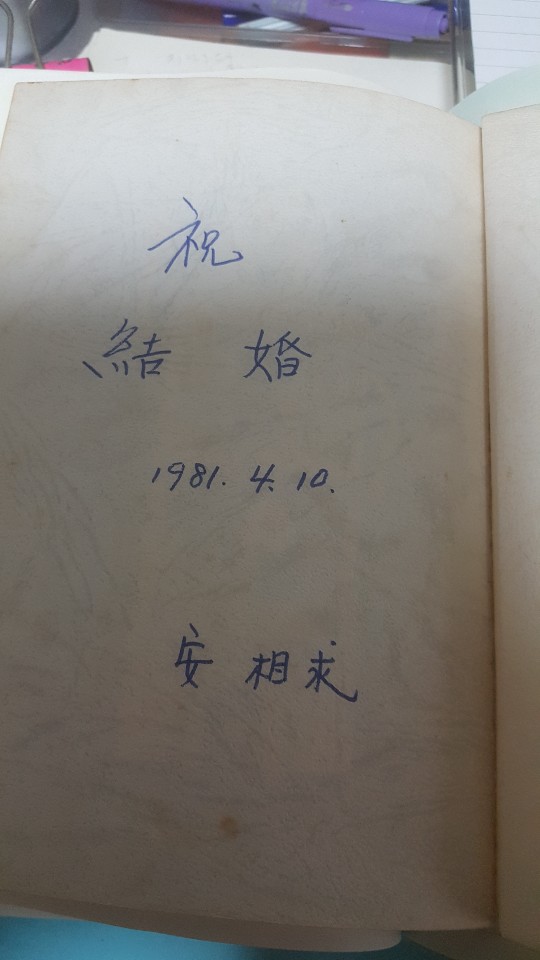 祝
結 婚
1981. 4. 10.
安 相求